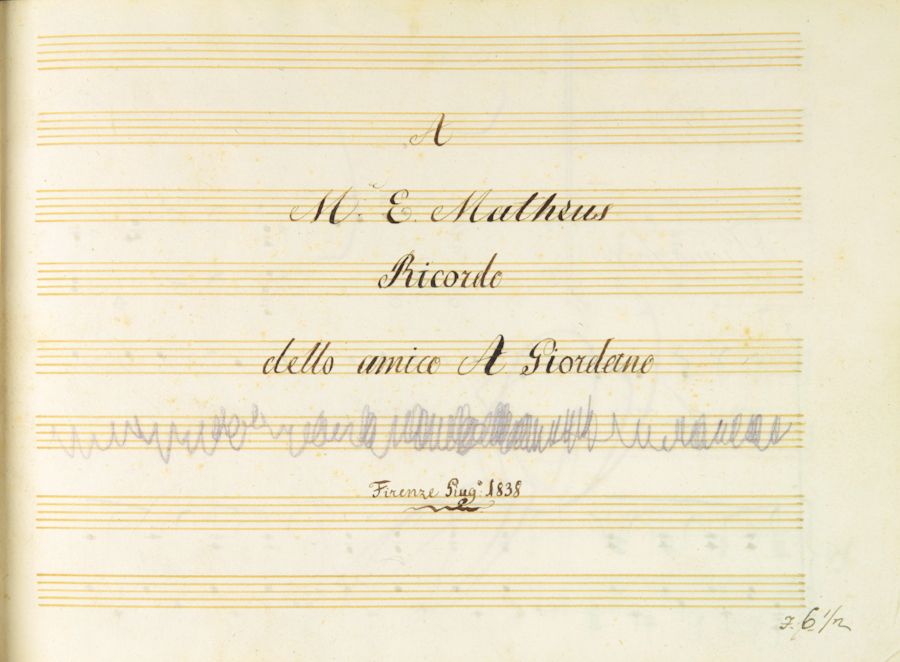 A
M.r E. Matheus
Ricordo
dello amico A Giordano
Firenze Giug.o 1838
F. 6 1/2